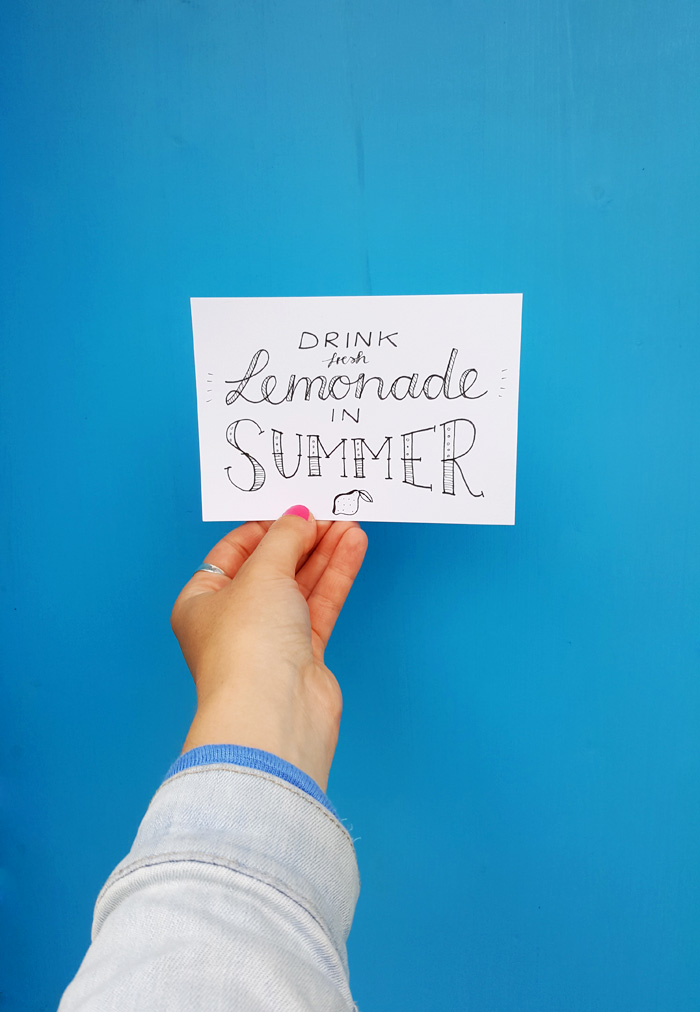 DRINK
fresh
Lemonade
IN
SUMMER